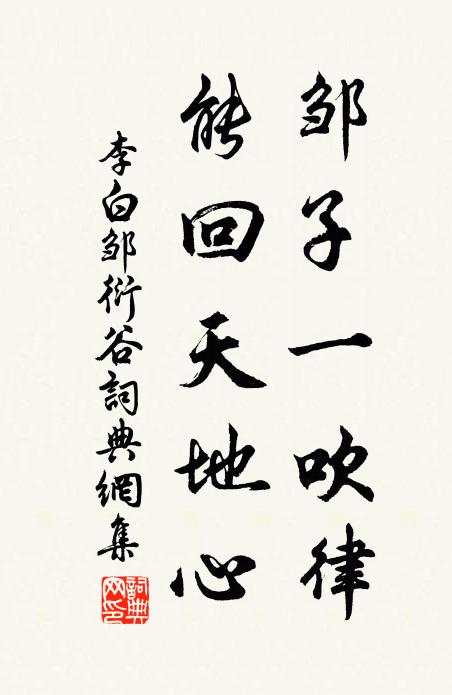 邹子一吹律
能回天地心
李白邹衍谷詞典網集
詞典网印